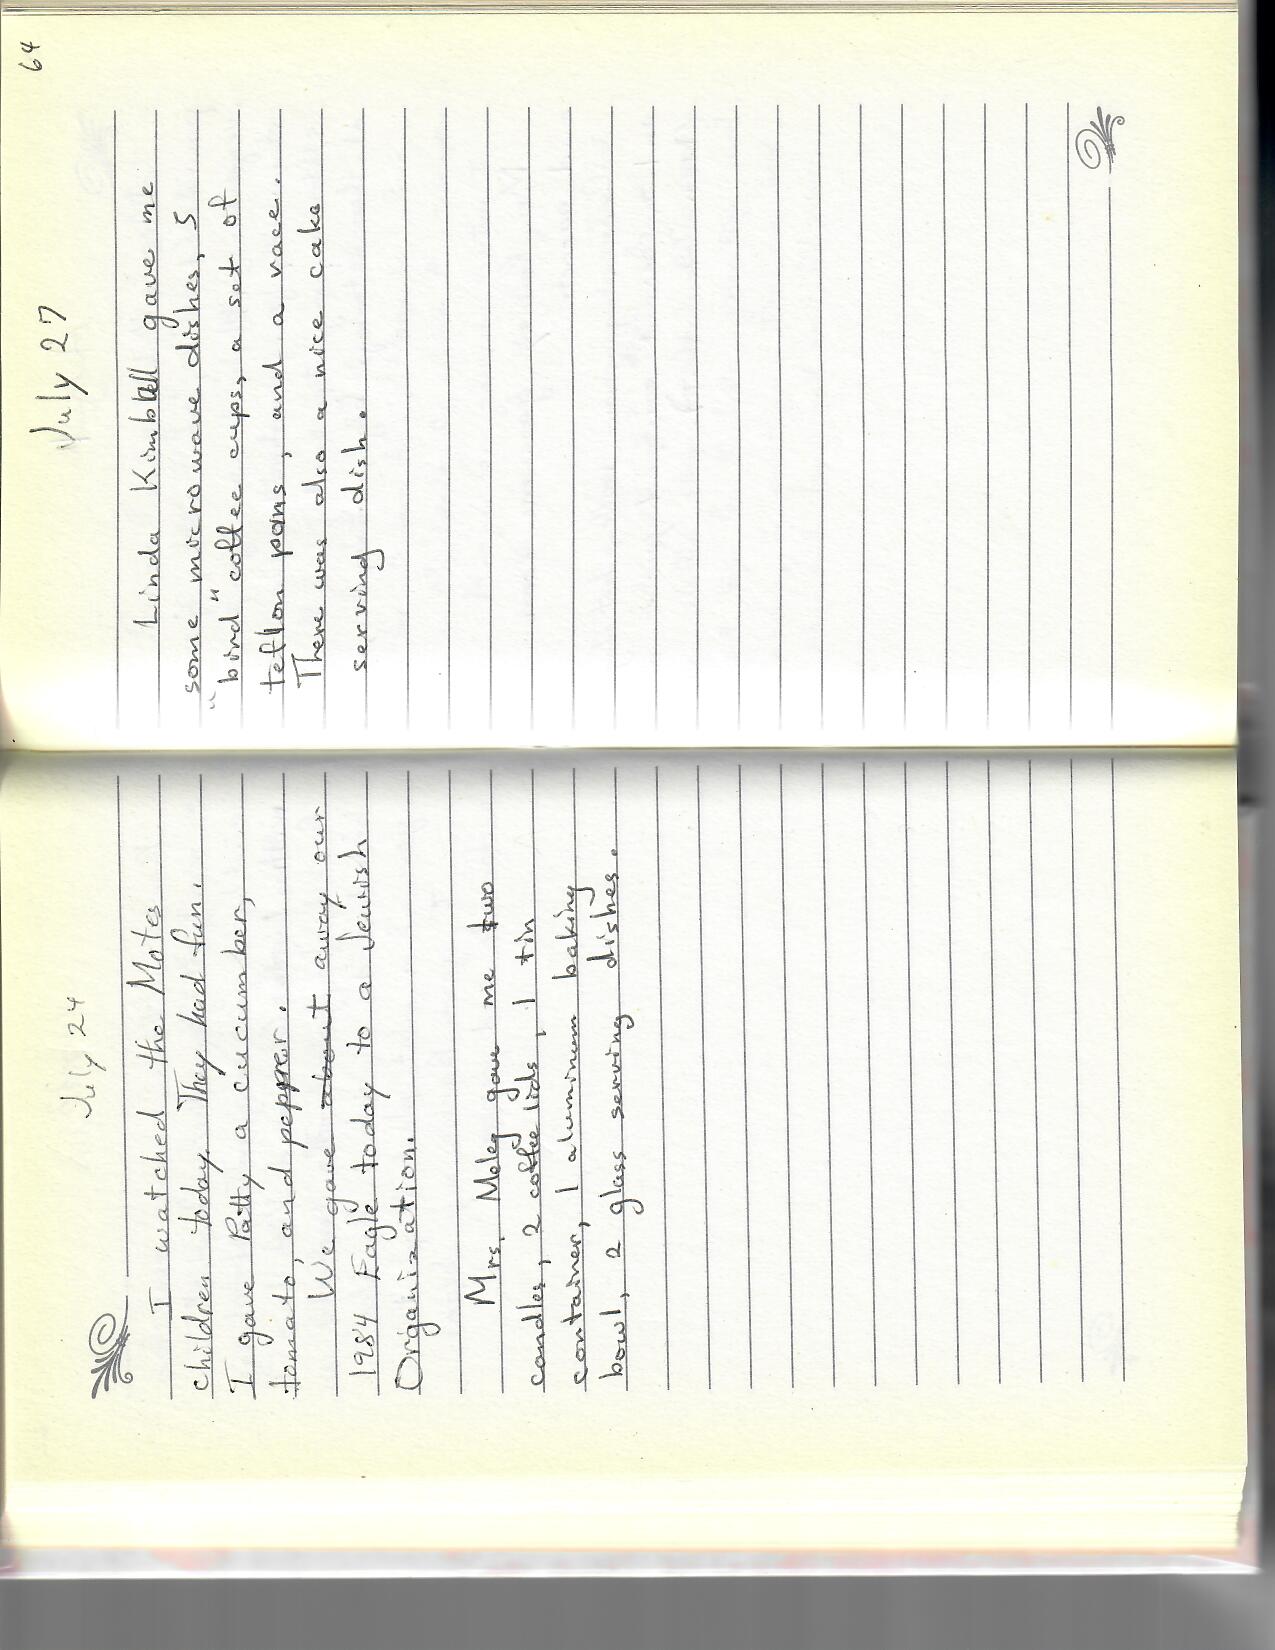 July 24
I watched the Motes
children today. They had fun.
I gave Patty a cucumber,
tomato, and pepper.
We gave about away our
1984 Eagle today to a Jewish
Organization.
Mrs. Meley gave me two
candles, 2 coffee lids, 1 tin
container, 1 aluminum baking
bowl, 2 glass serving dishes.
64
July 27
Linda Kimball gave me
some microwave dishes, 5
"bird" coffee cups, a set of
teflon pans, and a vace.
There was also a nice cake
serving dish.